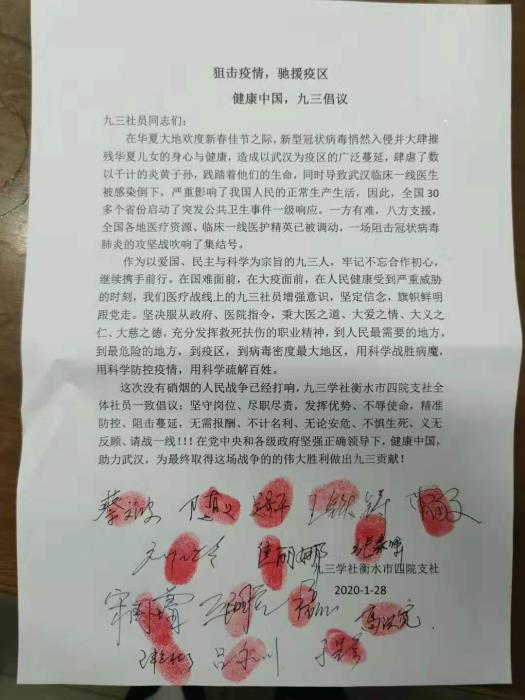 狙击疫情，驰援疫区
健康中国，九三倡议
九三社员同志们：
在华夏大地欢度新春佳节之际，新型冠状病毒悄然入侵并大肆摧
残华夏儿女的身心与健康，造成以武汉为疫区的广泛蔓延，肆虐了数
以千计的炎黄子孙，践踏着他们的生命，同时导致武汉临床一线医生
被感染倒下，严重影响了我国人民的正常生产生活，因此，全国 30
多个省份启动了突发公共卫生事件一级响应。一方有难，八方支援，
全国各地医疗资源、临床一线医护精英已被调动，一场阻击冠状病毒
肺炎的攻坚战吹响了集结号。
作为以爱国、民主与科学为宗旨的九三人，牢记不忘合作初心，
继续携手前行。在国难面前，在大疫面前，在人民健康受到严重威胁
的时刻，我们医疗战线上的九三社员增强意识，坚定信念，旗帜鲜明
跟党走。坚决服从政府、医院指令，秉大医之道、大爱之情、大义之
仁、大慈之德，充分发挥救死扶伤的职业精神，到人民最需要的地方，
到最危险的地方，到疫区，到病毒密度最大地区，用科学战胜病魔，
用科学防控疫情，用科学疏解百姓。
这次没有硝烟的人民战争已经打响，九三学社衡水市四院支社全
体社员一致倡议：坚守岗位、尽职尽责，发挥优势、不辱使命，精准
防控、阻击蔓延，无需报酬、不计名利、无论安危、不惧生死、义无
反顾、请战一线!!!在党中央和各级政府坚强正确领导下，健康中国，
助力武汉，为最终取得这场战争的的伟大胜利做出九三贡献！
九三学社衡水市四院支社
2020-1-28